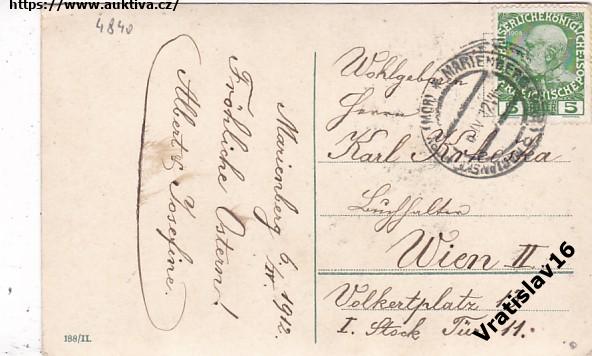 https://www.auktiva.cz/
4840
Marienberg 6/IV. 1912.
Fröhliche Ostern!
Albert & Josefine.
188/II.
KAISERLICHE KÖNIGLICHE
ÖSTERREICHISCHE POST
1908
5
MARIENBERG
(MÄHR)
Wohlgeboren
Herrn
Karl
Buchhalter
Wien II.
Volkertplatz
I. Stock Tür 11.
Vratislav16